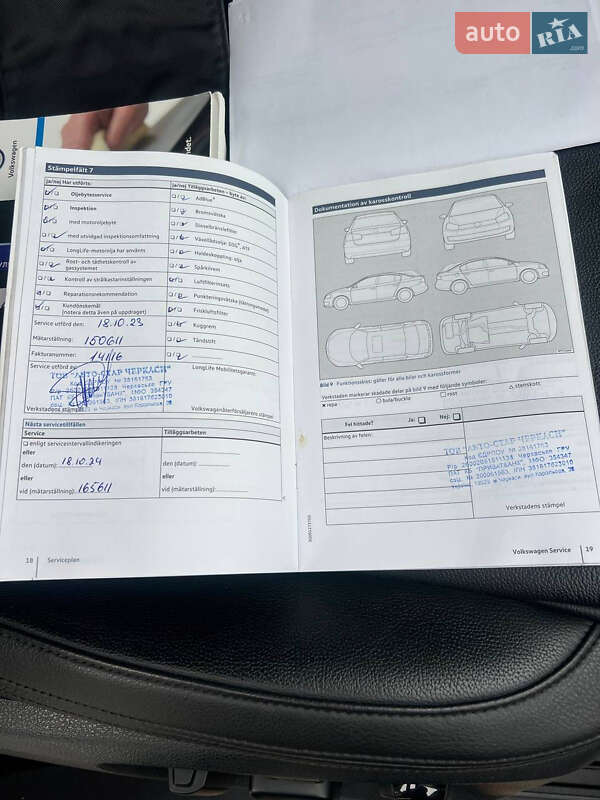 auto RIA .com
Volkswagen
Stämpelfält 7
ja/nej Har utförts:
ja/nej Tilläggsarbeten – byte av:
Oljebytesservice
AdBlue®
Inspektion
Bromsvätska
med motoroljebyte
Dieselbränslefilter
med utvidgad inspektionsomfattning
Växellådsolja: DSG®, ATS
LongLife-motorolja har använts
Haldexkoppling: olja
Rost- och täthetskontroll av gassystemet
Spårkirem
Kontroll av strålkastarinställningen
Luftfilterinsats
Reparationsrekommendation
Punkteringsvätska (tätningsmedel)
Kundönskemål
(notera detta även på uppdraget)
Friskluftsfilter
Service utförd den: 18.10.23
Kuggrem
Mätarställning: 150611
Tändstift
Fakturanummer: 14116
Service utförd av:
LongLife Mobilitetsgaranti
ТОВ "АВТО-СТАР ЧЕРКАСИ"
Verkstadens stämpel
Volkswagenåterförsäljarens stämpel
Nästa servicetillfällen
Service
Tilläggsarbeten
enligt serviceintervallindikeringen
eller
den (datum): 18.10.24
den (datum):
eller
eller
vid (mätarställning): 165611
vid (mätarställning):
18
Serviceplan
Dokumentation av karosskontroll
Bild 9 Funktionsskiss: gäller för alla bilar och karossformer
Verkstaden markerar skadade delar på bild 9 med följande symboler:
× repa
○ bula/buckla
□ rost
△ stenskott
Fel hittade?
Ja:
Nej:
Beskrivning av felen:
ТОВ "АВТО-СТАР ЧЕРКАСИ"
Код ЄДРПОУ № 38161753
Verkstadens stämpel
Volkswagen Service
19